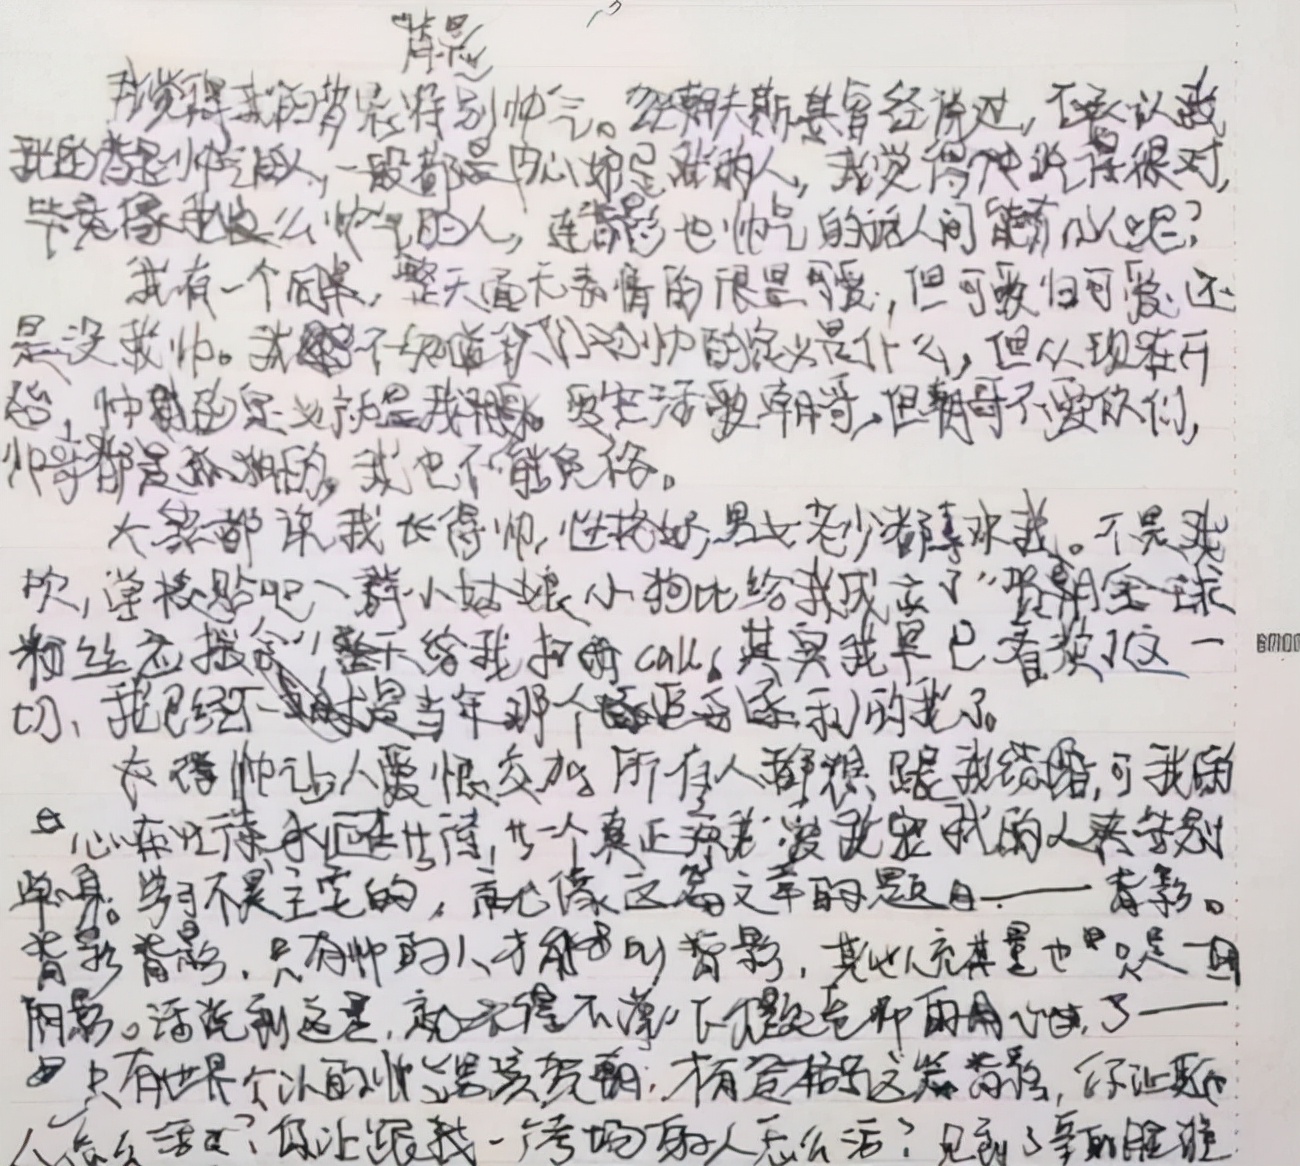 背影
我觉得我的背影特别帅气。贺朝夫斯基曾经说过，不承认我
我的背影帅气的人，一般都是内心嫉妒我的人，我觉得他说得很对，
毕竟像我这么帅气的人，连背影也帅气的话人间能有几人呢？
我有一个同桌，整天面无表情的很是可爱，但可爱归可爱，还
是没我帅。我不知道你们对帅的定义是什么，但从现在开
始，帅的定义就是我。爱生活爱朝哥，但朝哥不爱你们，
帅哥都是孤独的，我也不能免俗。
大家都说我长得帅，性格好，男女老少都喜欢我。不是我
吹，学校贴吧一群小姑娘小狗比给我成立了“贺朝全球
粉丝应援会”，整天给我打call，其实我早已看淡了这一
切，我已经不是当年那个追逐名利的我了。
长得帅让人爱恨交加。所有人都想跟我结婚，可我的
心在忙，一个真正我的人来告别
单身。学习不是主宰的，就像这篇文章的题目——背影。
背影背影，只有帅的人才能叫背影，其他人充其量也只是一团
阴影。话说到这里，就不得不提一下出卷老师的用心了——
只有世界上最帅的男孩贺朝，才有资格写这篇背影，你让其他
人怎么活？你让跟我一个考场的人怎么活？见到了